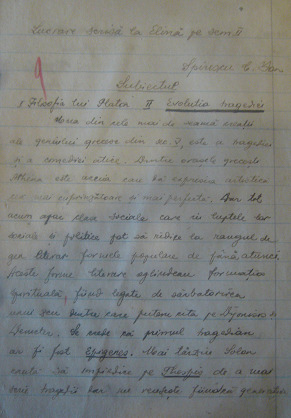 Lucrare scrisă la Elină pe sem. II
9
Subiectul
Filosofia lui Platon II Evoluția tragediei
din cele mai de seamă creații
ale geniului grecesc din sec. V, este a tragediei
și a comediei atice. Dintre orașele grecești
Athena este aceia care dă expresia artistică
cea mai cuprinzătoare și mai perfectă. Dar tot
acum apar clase sociale care în luptele lor
sociale și politice pot să ridice la rangul de
gen literar formele populare de până atunci.
Aceste forme literare oglindeau formația
spirituală, fiind legate de sărbătorirea
unui zeu dintre care putem cita pe Dyonisos și
Demeter. Se crede că primul tragedian
ar fi fost Epigenes. Mai târziu Solon
caută să împiedice pe Thespis de a mai
scrie tragedii dar nu reușește fiindcă generația